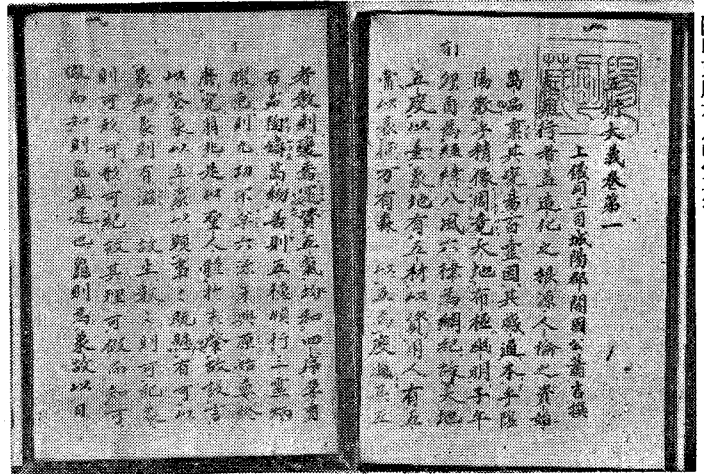 五行大義卷第一
上儀同三司城陽郡開國公蕭吉撰
行者蓋造化之根源人倫之資始
萬品稟其變易百靈因其感通本乎陰
陽散乎精像周竟天地布極幽明子午
卯酉為經緯八風六律為綱紀故天
五度以垂象地有五材以資用人有五
常以表德万有森 以五為度過其五
者數則變焉寔資五氣均和四序孕育
百品陶鑄萬物善則五德順行三靈炳
曜惡則九功不 六沴互興原始要終
靡究萌兆是以聖人體於未肇故設言
以筌象立象以顯事々既懸有可以
象知象則有滋 故生數々則可紀象
則可形可紀故其理可假而知可
假而知則龜筮是也龜則為象故以日